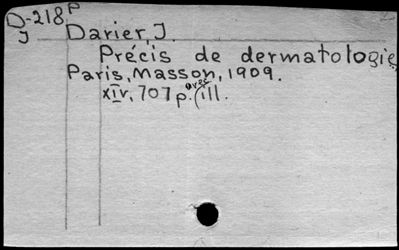 D-218P
J Darier, J.
Précis de dermatologie,
Paris, Masson, 1909.
XIV, 707 p. (avec ill.